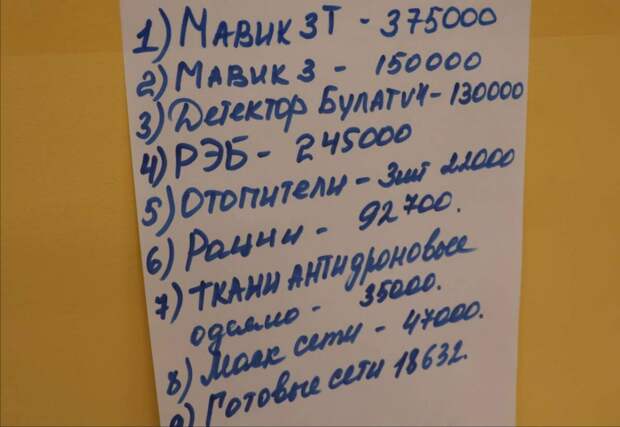 1) МАВИК 3Т - 375000
2) МАВИК 3 - 150000
3) Детектор БУЛАТ V4 - 130000
4) РЭБ - 245000
5) Отопители - 3шт 22000
6) Рации - 92700.
7) ТКАНИ АНТИдроновые
одеяло - 35000.
8) Маск сети - 47000.
9) Готовые сети 18632.